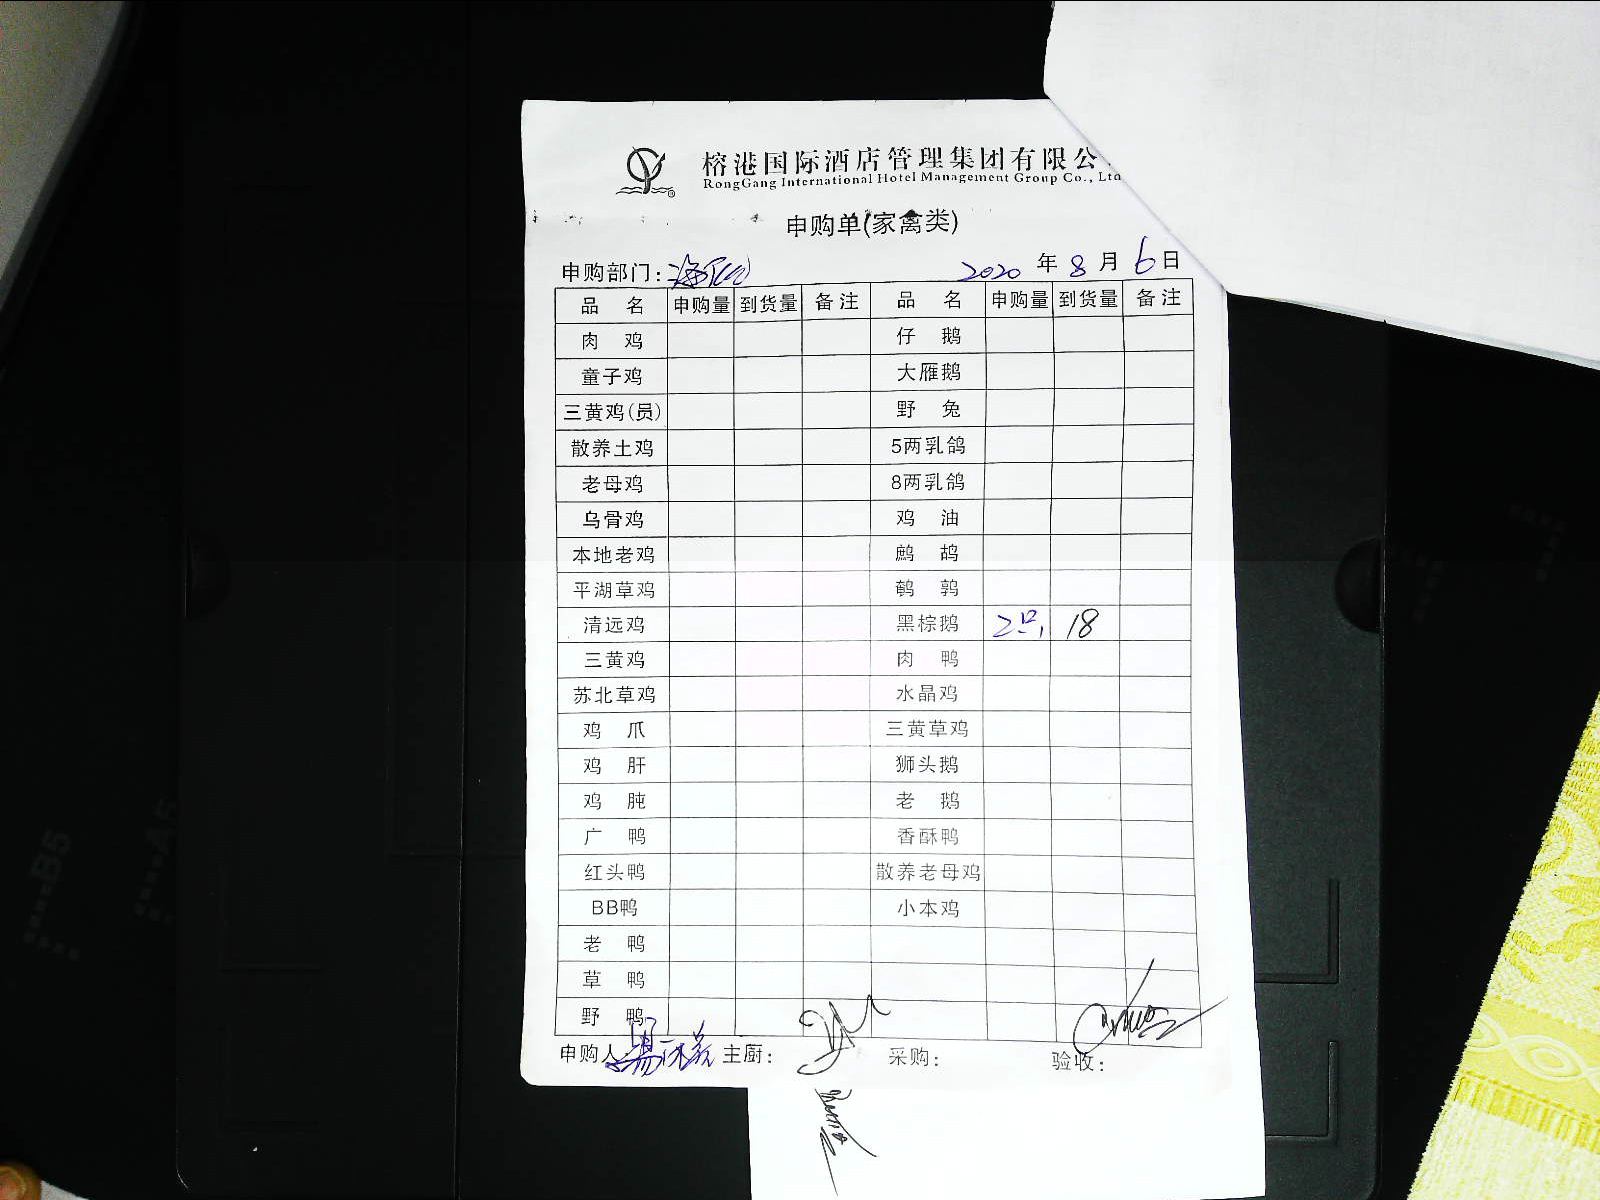 榕港国际酒店管理集团有限公
RongGang International Hotel Management Group Co., Ltd
申购单(家禽类)
申购部门: 2020 年 8 月 6 日
品 名 申购量 到货量 备注 品 名 申购量 到货量 备注
肉 鸡 仔 鹅
童子鸡 大雁鹅
三黄鸡(员) 野 兔
散养土鸡 5两乳鸽
老母鸡 8两乳鸽
乌骨鸡 鸡 油
本地老鸡 鹧 鸪
平湖草鸡 鹌 鹑
清远鸡 黑棕鹅 2只 18
三黄鸡 肉 鸭
苏北草鸡 水晶鸡
鸡 爪 三黄草鸡
鸡 肝 狮头鹅
鸡 肫 老 鹅
广 鸭 香酥鸭
红头鸭 散养老母鸡
BB鸭 小本鸡
老 鸭
草 鸭
野 鸭
申购人: 主厨: 采购: 验收:
B5
A5